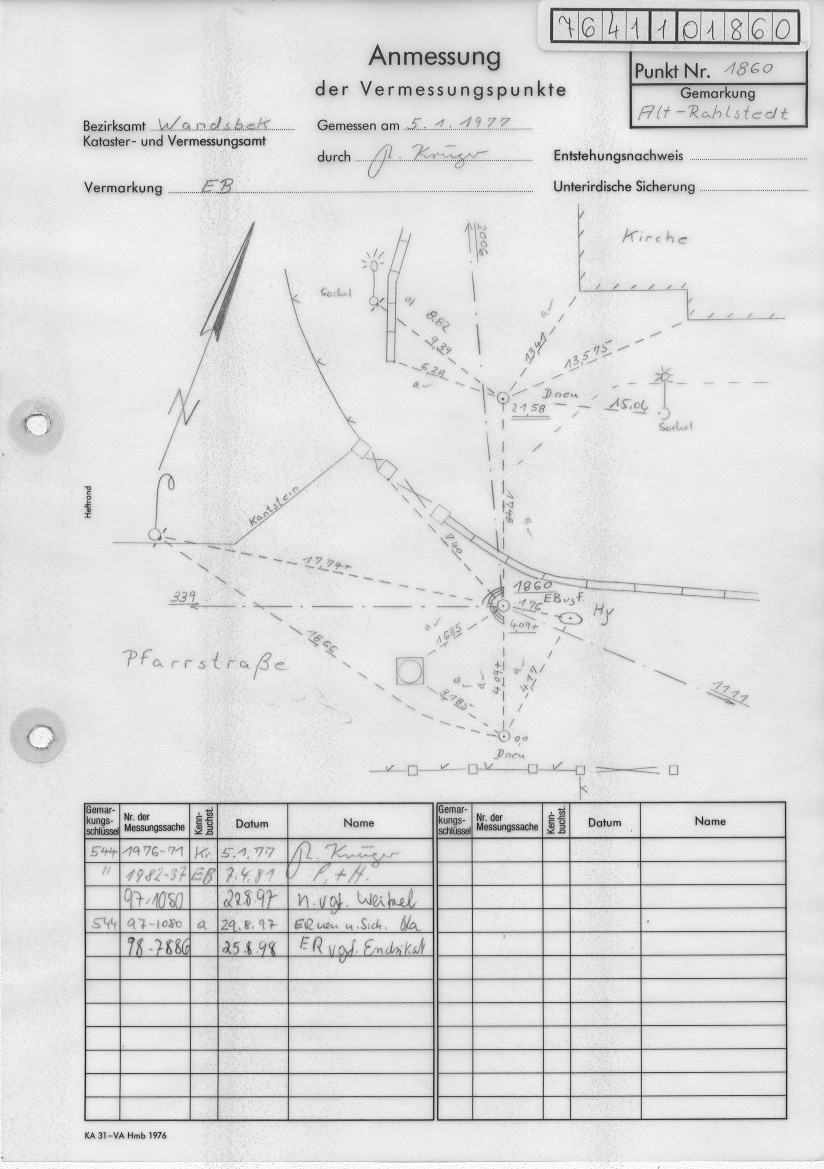 7641101860
Anmessung
der Vermessungspunkte
Punkt Nr. 1860
Gemarkung
Alt-Rahlstedt
Bezirksamt Wandsbek
Kataster- und Vermessungsamt
Gemessen am 5.1.1977
durch R. Krüger
Entstehungsnachweis
Vermarkung EB
Unterirdische Sicherung
Kirche
2006
Sockel
a)
8,82
9,39
6,28
a
a
13,41
13,575
Dneu
21,58
15,04
Sockel
Heftrand
Kantstein
N
17,48
a
7,40
17,74+
339
1860
1,76
EB vgf.
Hy
4,09+
18,66
Pfarrstraße
a
1,635
a
3,185
4,09+
a
4,17
1111
0,0
Dneu
Gemar-
kungs-
schlüssel
Nr. der
Messungssache
Kenn-
buchst.
Datum
Name
Gemar-
kungs-
schlüssel
Nr. der
Messungssache
Kenn-
buchst.
Datum
Name
544 1976-71 Kr. 5.1.77 R. Krüger
" 1982-37 EB 7.4.81 P. + H.
97-1080 22.8.97 n. vgf. Weitzel
544 97-1080 a 29.8.97 ER neu u. Sich.
98-7886 25.8.98 ER vgf. Endrikat
KA 31–VA Hmb 1976